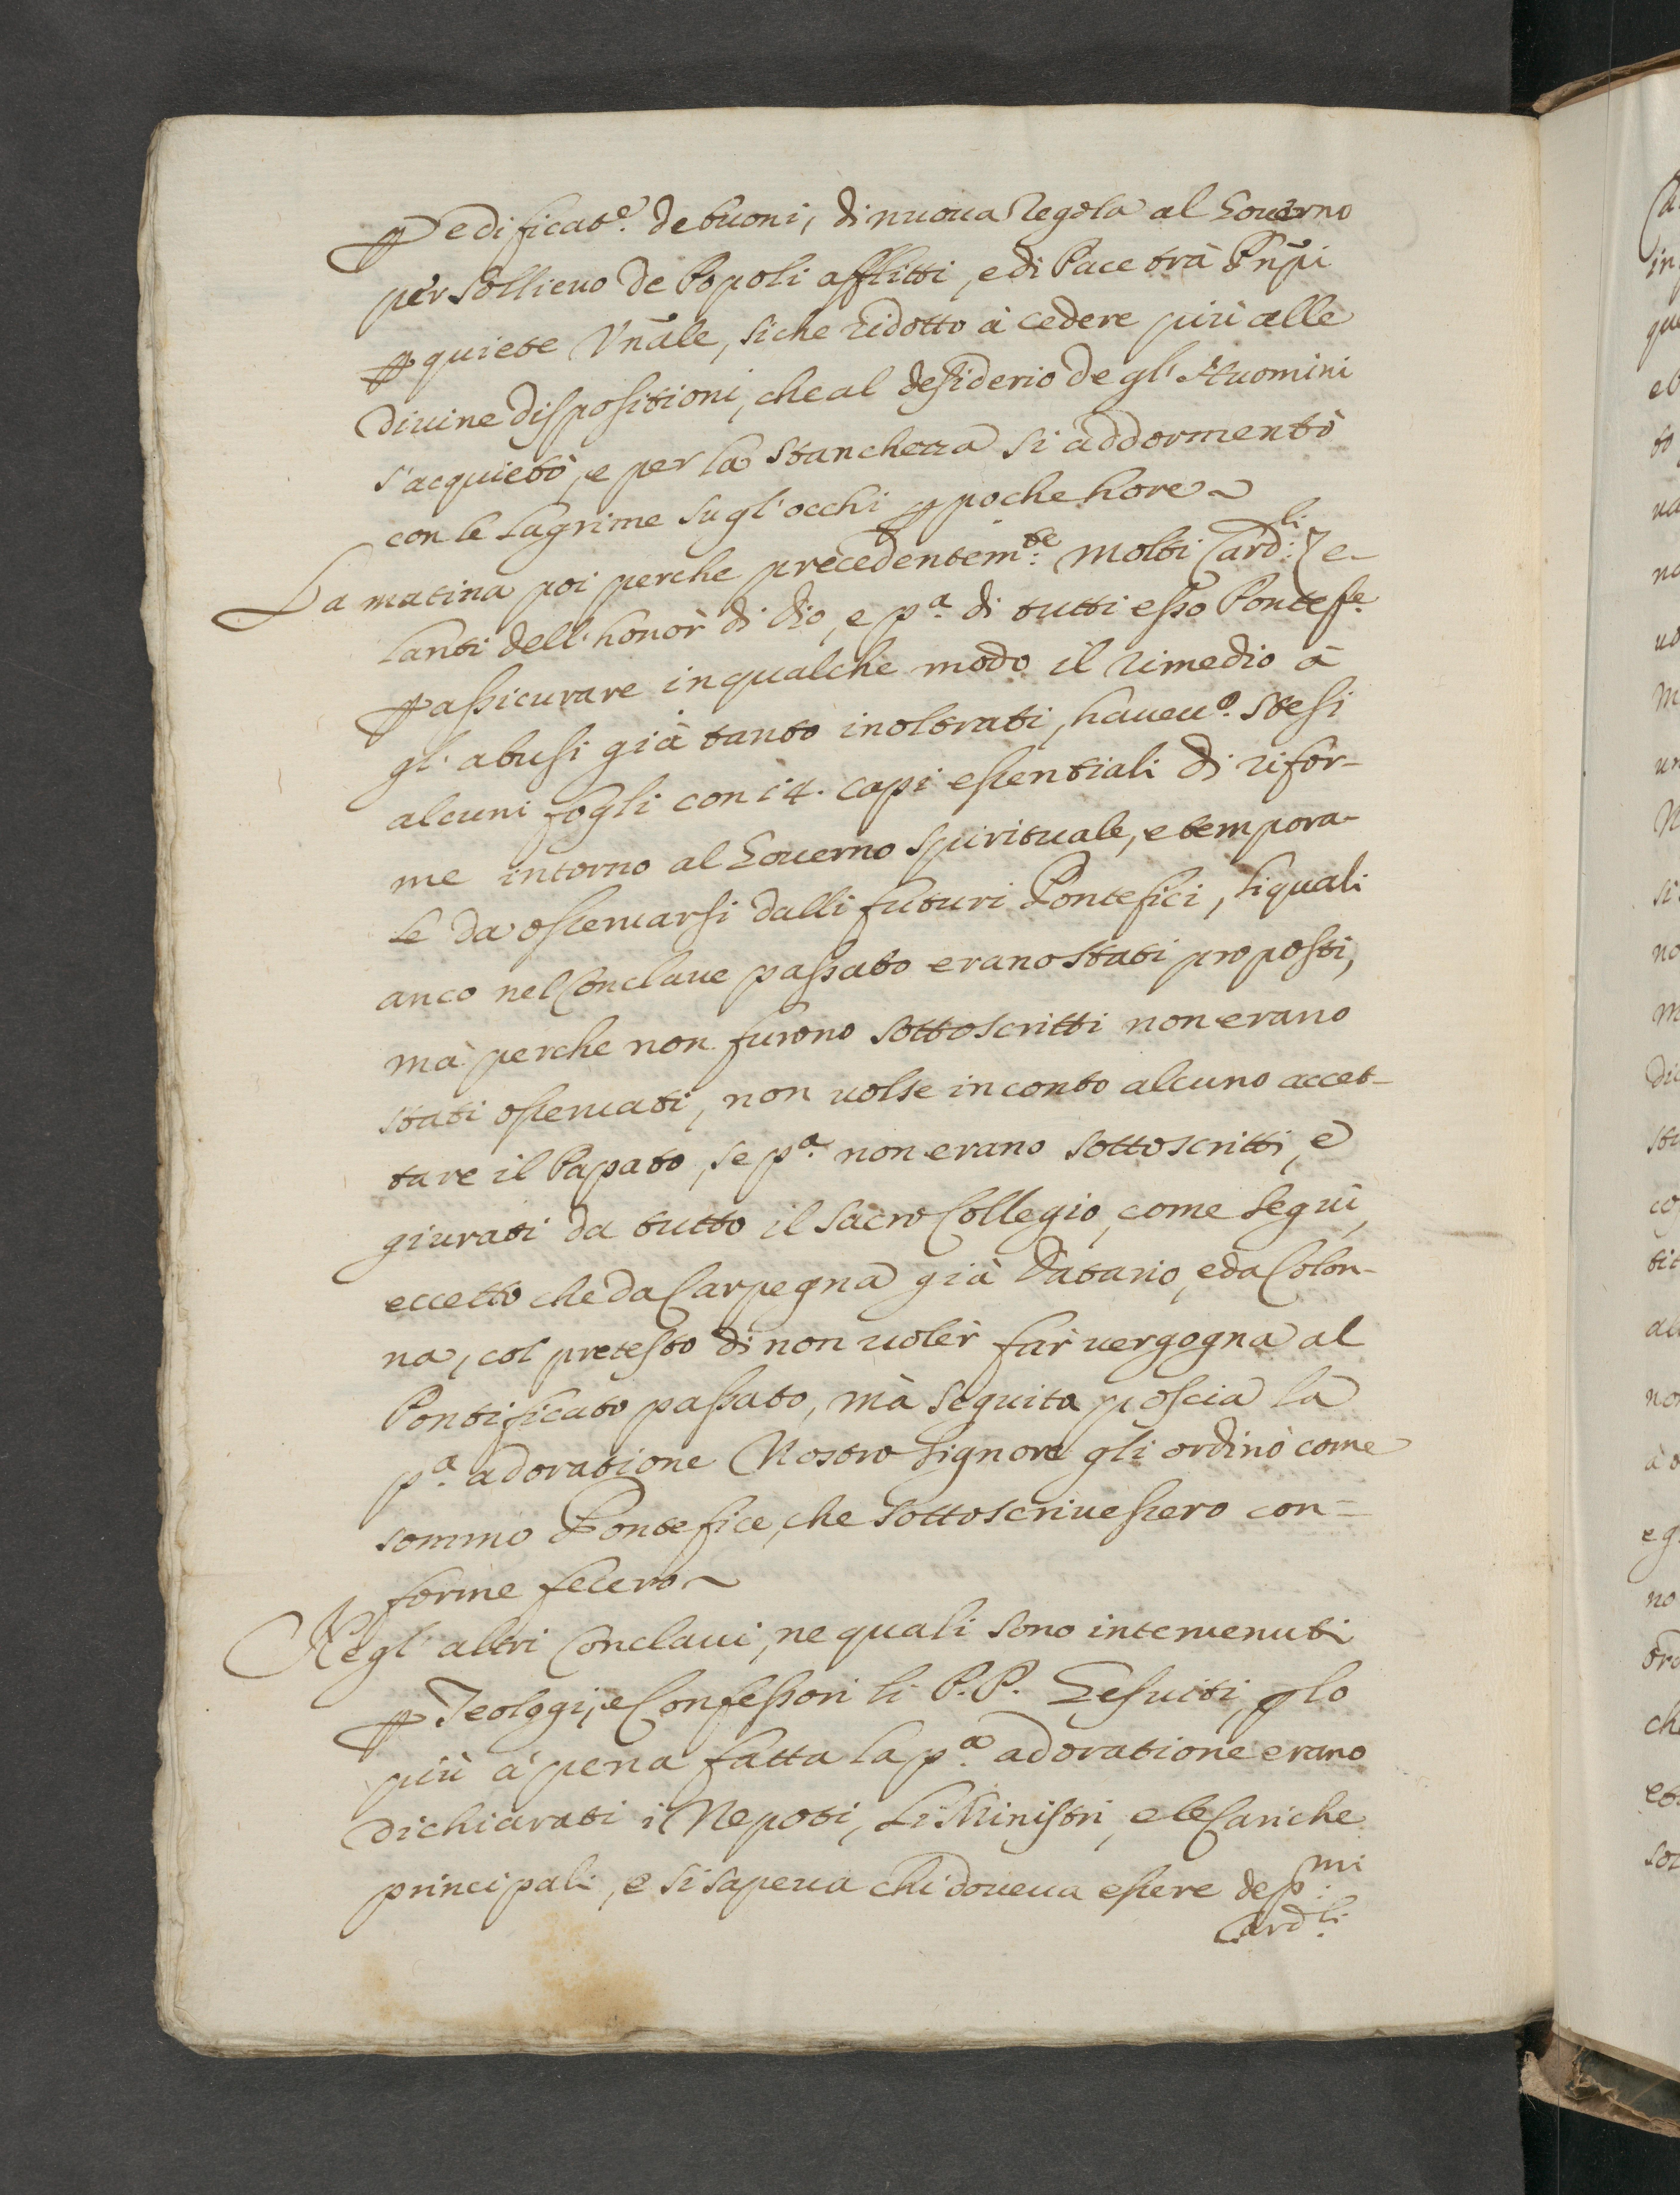 ꝑ edificat.e de buoni, di nuoua Regola al Gouerno
per sollieuo de Popoli afflitti, e di Pace trà Prñpi
ꝑ quiete Vñale, siche ridotto à cedere più alle
diuine dispositioni, che al desiderio degl' Huomini
s'acquietò, e per la stanchezza si addormentò
con le lagrime sugl'occhi ꝑ poche hore ~
La matina poi perche precedentem.te molti Card.li Ze-
lanti dell'honòr di Dio, e p.a di tutti esso Pontef.e
ꝑ assicurare in qualche modo il rimedio à
gl'abusi già tanto inoltrati, haueu.o stesi
alcuni fogli con 14. capi essentiali di rifor-
me intorno al Gouerno spirituale, e tempora-
le da osseruarsi dalli futuri Pontefici, li quali
anco nel Conclaue passato erano stati proposti,
mà perche non furono sottoscritti non erano
stati osseruati, non uolse in conto alcuno accet-
tare il Papato, se p.a non erano sottoscritti, e
giurati da tutto il Sacro Collegio, come seguì,
eccetto che da Carpegna già Datario, e da Colon-
na, col pretesto di non uolèr far uergogna al
Pontificato passato, mà seguita poscia la
p.a adoratione Nostro Signore gli ordinò come
sommo Pontefice, che sottoscriuessero con=
forme fecero ~
Negl'altri Conclaui, ne quali sono interuenuti
ꝑ Teologi, e Confessori li P.P. Gesuiti, ꝑ lo
più à pena fatta la p.a adoratione erano
dichiarati i Nepoti, li Ministri, e le Cariche
principali, e si sapeua chi doueua essere de p.mi
Card.li